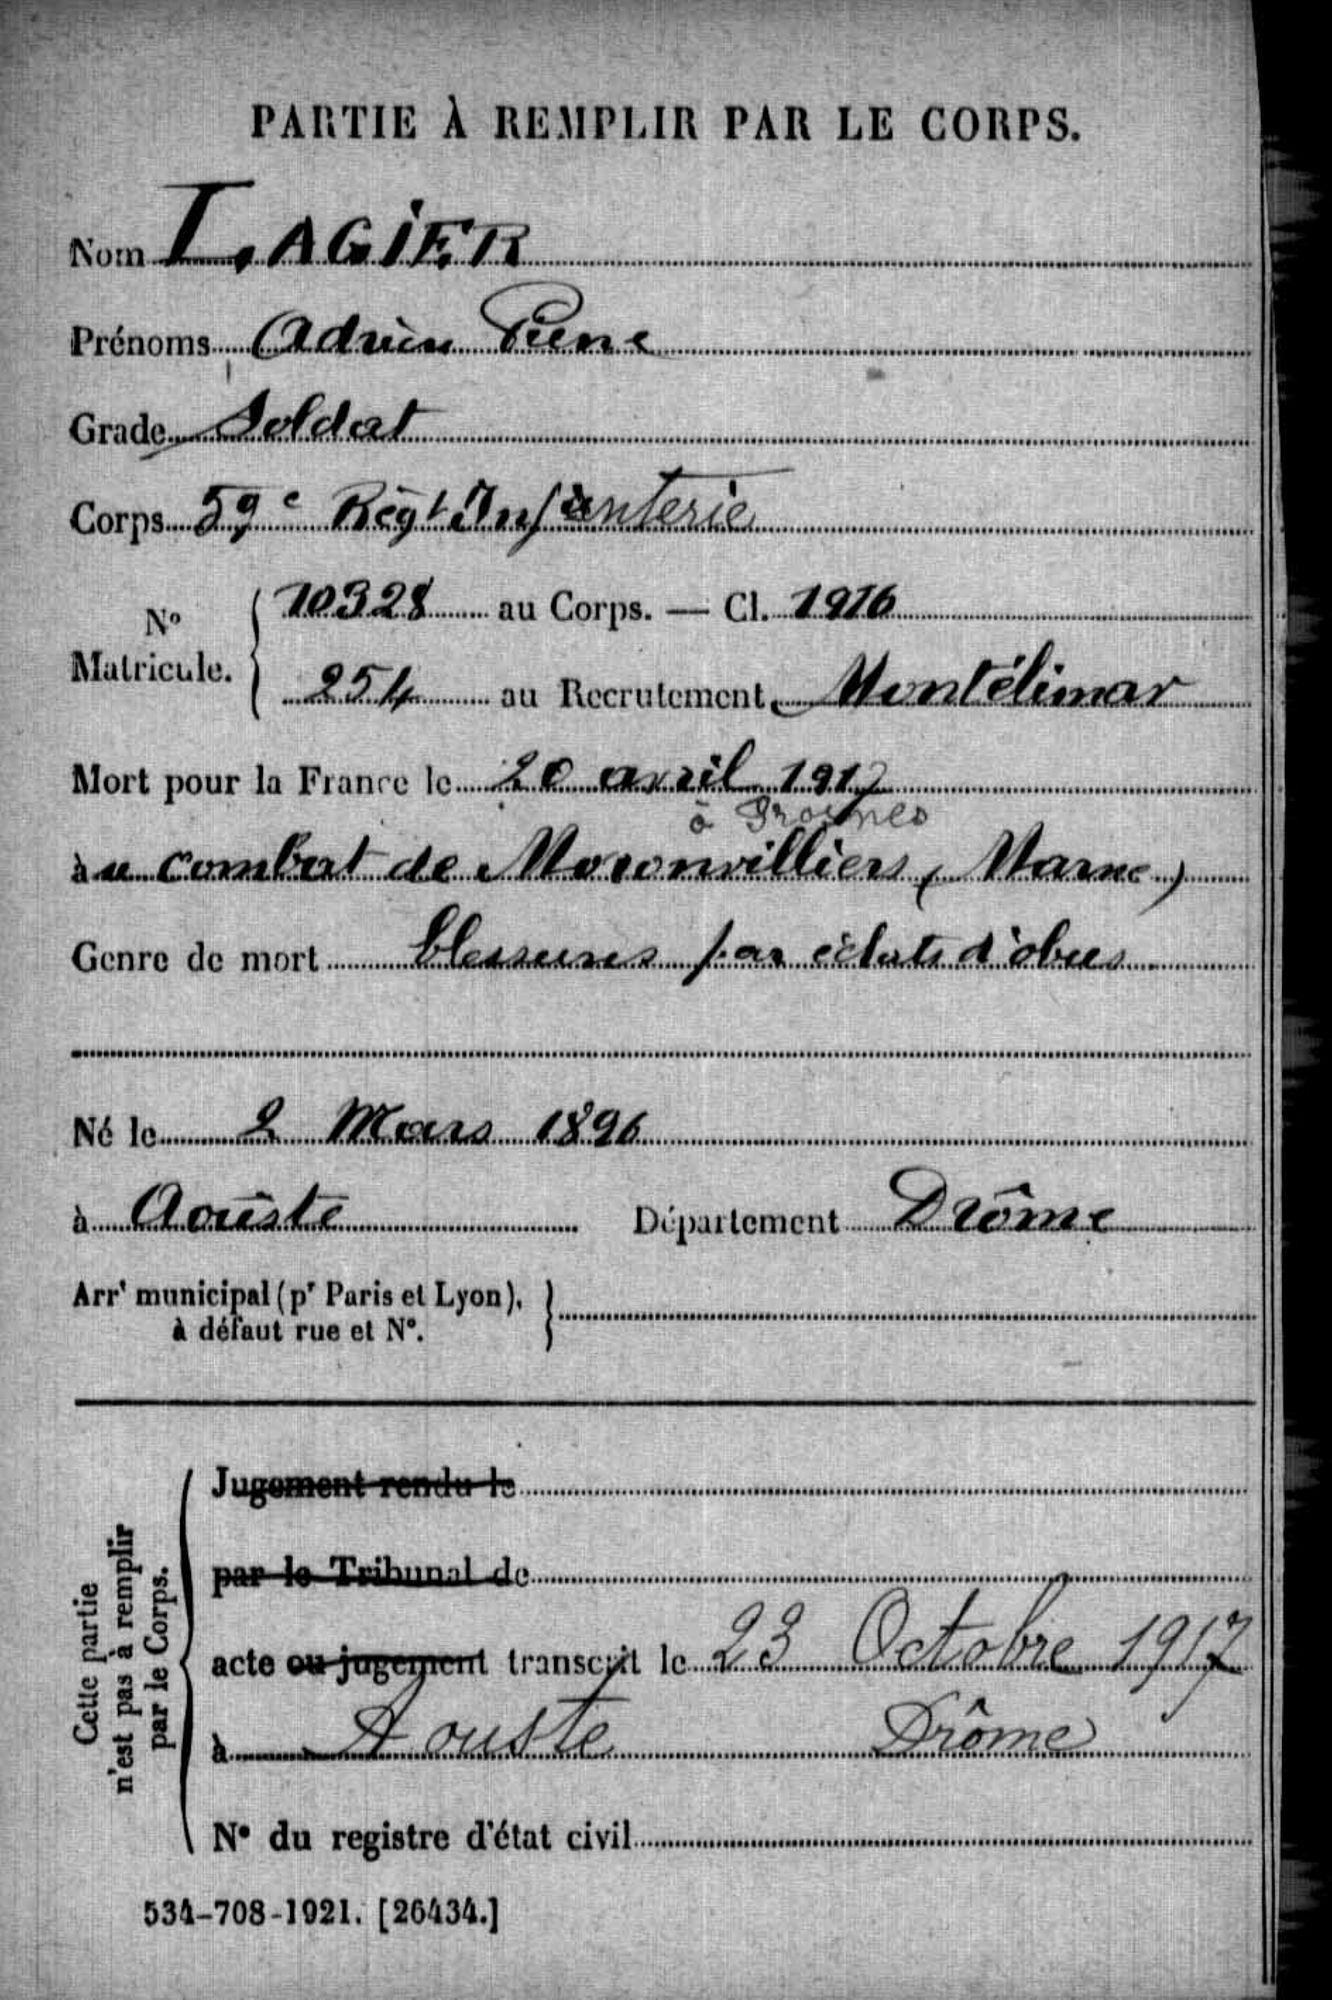 PARTIE À REMPLIR PAR LE CORPS.
Nom LAGIER
Prénoms Adrien Pierre
Grade Soldat
Corps 59e Régt Infanterie
No Matricule. 10328 au Corps. — Cl. 1916
254 au Recrutement Montélimar
Mort pour la France le 20 avril 1917
à Prosnes
au combat de Moronvilliers (Marne)
Genre de mort blessures par éclats d'obus
Né le 2 Mars 1896
à Aouste Département Drôme
Arrt municipal (pr Paris et Lyon),
à défaut rue et N°.
Cette partie
n'est pas à remplir
par le Corps.
Jugement rendu le
par le Tribunal de
acte ou jugement transcrit le 23 Octobre 1917
à Aouste Drôme
N° du registre d'état civil
534-708-1921. [26434.]